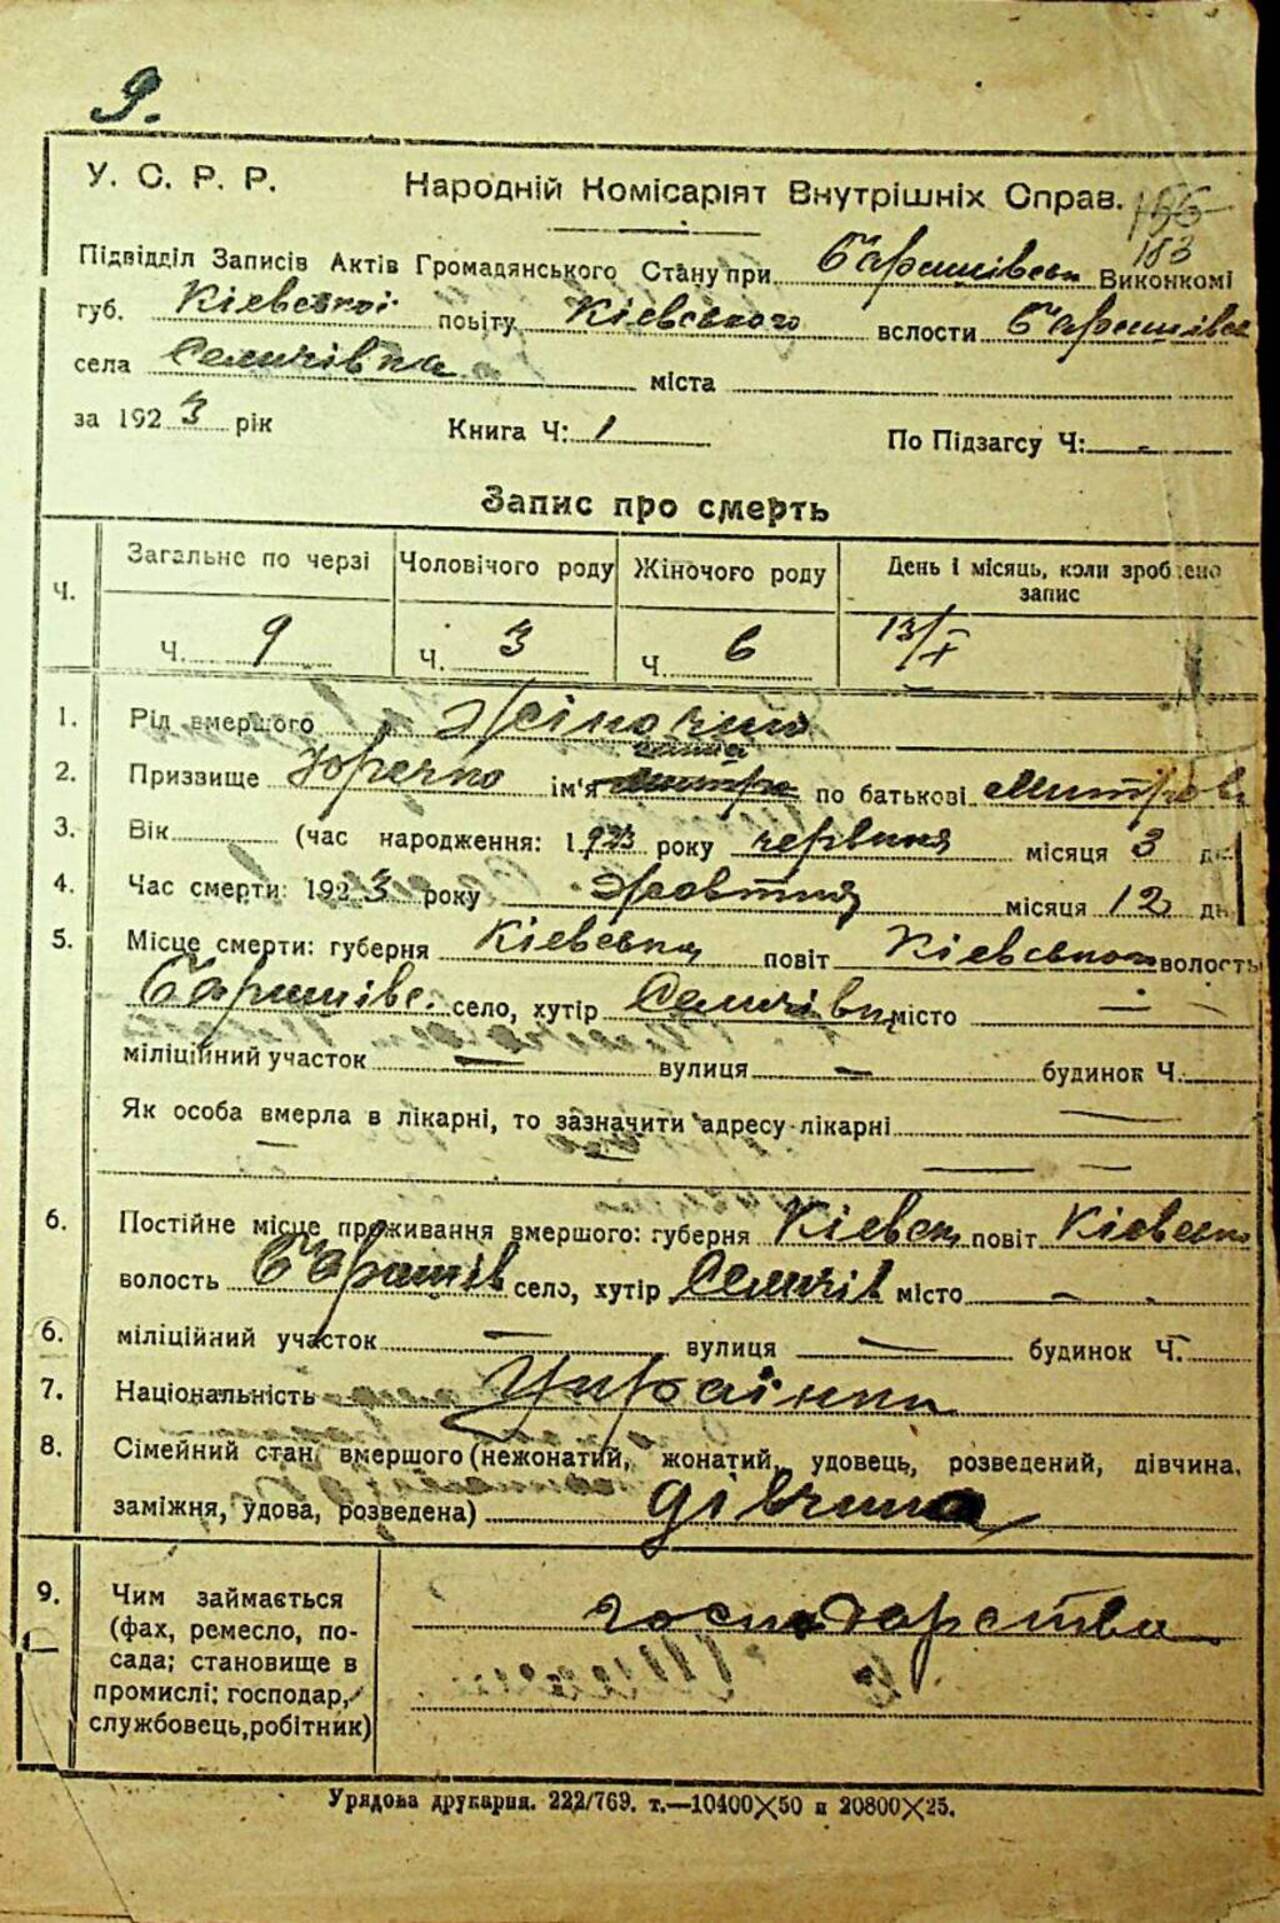 9.
У. С. Р. Р. Народній Комісаріят Внутрішніх Справ. 156
183
Підвідділ Записів Актів Громадянського Стану при Баришівськ Виконкомі
губ. Кієвської повіту Кієвського вслости Баришівсь
села Селичівка міста
за 1923 рік Книга Ч: 1 По Підзагсу Ч: -
Запис про смерть
Ч. Загальне по черзі Чоловічого роду Жіночого роду День і місяць, коли зроблено
запис
Ч. 9 Ч. 3 Ч. 6 13/X
1. Рід вмершого Жіночий
2. Призвище ім'я по батькові Митров
3. Вік (час народження: 1923 року червння місяця 3 дн
4. Час смерти: 1923 року Жовтня місяця 12 дн
5. Місце смерти: губерня Кієвська повіт Кієвського волость
Баришівс. село, хутір Селичівка місто —
міліційний участок — вулиця — будинок Ч.
Як особа вмерла в лікарні, то зазначити адресу лікарні —
— — —
6. Постійне місце проживання вмершого: губерня Кієвськ повіт Кієвсько
волость Баришів село, хутір Селичів місто —
6. міліційний участок — вулиця — будинок Ч.
7. Національність Українка
8. Сімейний стан вмершого (нежонатий, жонатий, удовець, розведений, дівчина,
заміжня, удова, розведена) дівчина
9. Чим займається
(фах, ремесло, по-
сада; становище в
промислі: господар,
службовець, робітник) господарства
Урядова друкарня. 222/769. т.—10400×50 и 20800×25.